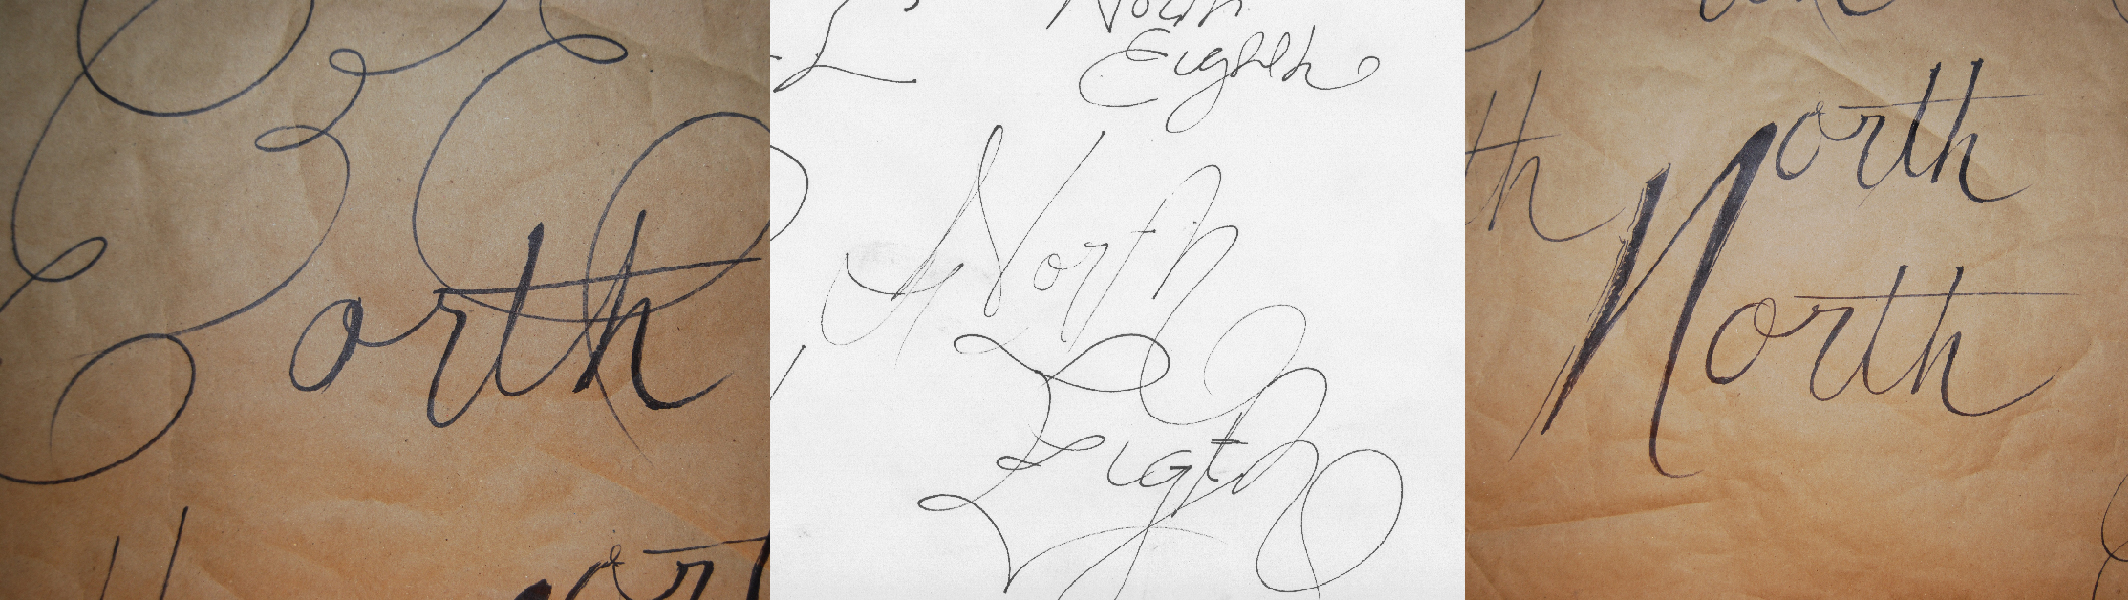 orth
North
Eighth
North
Eigth
orth
th
North